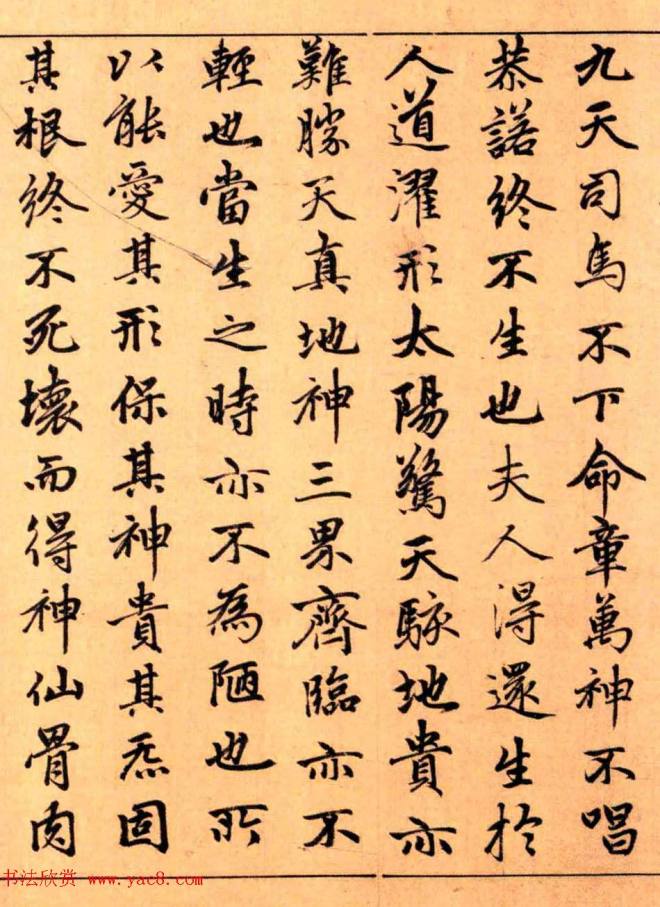 九天司馬不下命章萬神不唱
恭諾終不生也夫人得還生於
人道濯形太陽驚天駭地貴亦
難勝天真地神三界齊臨亦不
輕也當生之時亦不為陋也所
以能愛其形保其神貴其炁固
其根終不死壞而得神仙骨肉
书法欣赏 www.yac8.com